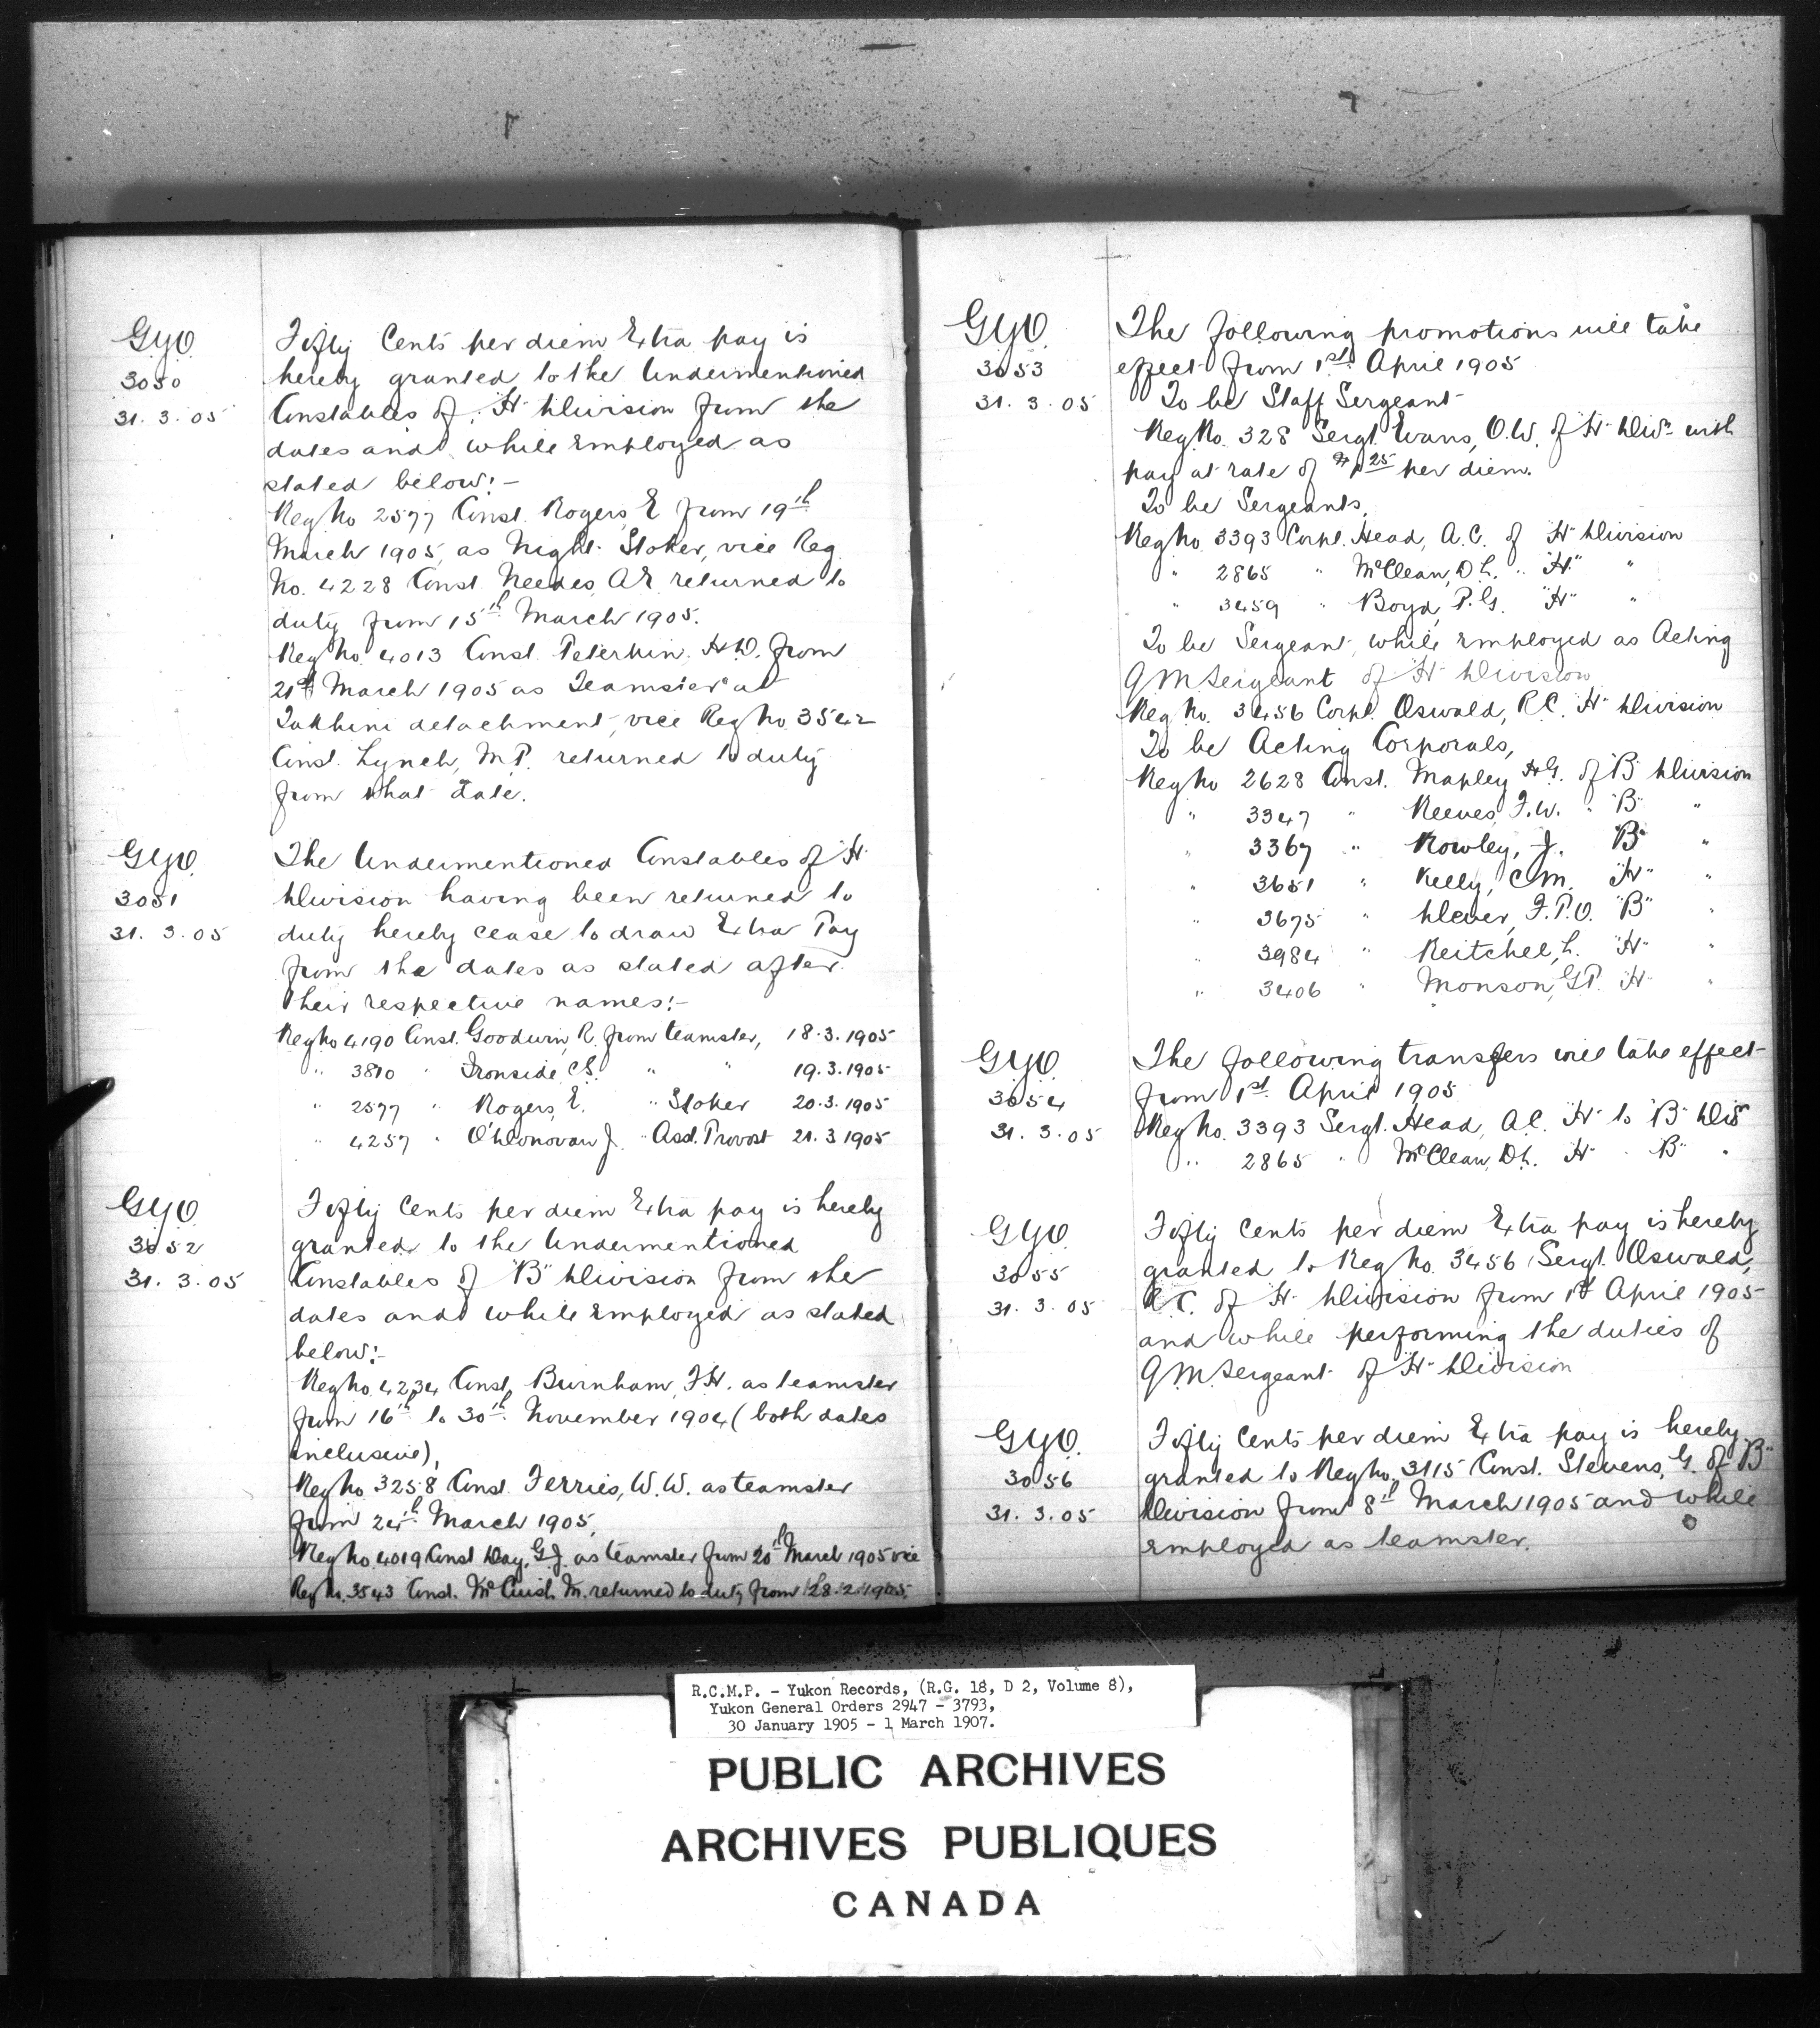 G.Y.O.
3050
31. 3. 05
Fifty Cents per diem Extra pay is
hereby granted to the Undermentioned
Constables of "H" Division from the
dates and while Employed as
stated below:-
Reg No 2577 Const. Rogers, E from 19th
March 1905, as Night Stoker, vice Reg.
No. 4228 Const. Needes, A.E. returned to
duty from 15th March 1905.
Reg No. 4013 Const. Peterkin. H.D. from
21st March 1905 as Teamster at
Takhini detachment, vice Reg No. 3542
Const. Lynch, M.P. returned to duty
from that date.
G.Y.O.
3051
31. 3. 05
The Undermentioned Constables of "H"
Division having been returned to
duty hereby cease to draw Extra Pay
from the dates as stated after
their respective names:-
Reg No 4190 Const. Goodwin, R. from teamster, 18.3.1905
" 3810 " Ironside, C.S. " " 19.3.1905
" 2577 " Rogers, E. " Stoker 20.3.1905
" 4257 " O'Donovan J. " Asst. Provost 21.3.1905
G.Y.O.
3052
31. 3. 05
Fifty Cents per diem Extra pay is hereby
granted to the Undermentioned
Constables of "B" Division from the
dates and while Employed as stated
below:-
Reg No. 4234 Const. Burnham, F.H. as teamster
from 16th to 30th November 1904 (both dates
inclusive),
Reg No. 3258 Const. Ferries, W.W. as teamster
from 24th March 1905,
Reg No. 4019 Const Day, G.J. as teamster from 20th March 1905 vice
Reg No. 3543 Const. McCuish, M. returned to duty from 28.2.1905.
G.Y.O.
3053
31. 3. 05
The following promotions will take
effect from 1st April 1905
To be Staff Sergeant
Reg No. 328 Sergt. Evans, O.W. of "H" Divn with
pay at rate of $1.25 per diem.
To be Sergeants,
Reg No. 3393 Corpl. Head, A.C. of "H" Division
" 2865 " McClean, D.L. " "H" "
" 3459 " Boyd, P.G. "H" "
To be Sergeant, while Employed as Acting
Q M Sergeant of "H" Division
Reg No. 3456 Corpl. Oswald, R.C. "H" Division
To be Acting Corporals,
Reg No 2628 Const. Mapley H.G. of "B" Division
" 3347 " Reeves, F.W. " "B" "
" 3367 " Rowley, J. "B" "
" 3651 " Kelly, C.M. "H" "
" 3675 " Dever, F.P.O. "B" "
" 3984 " Reitchel, L. "H" "
" 3406 " Monson, G.P. "H" "
G.Y.O.
3054
31. 3. 05
The following transfers will take effect
from 1st April 1905
Reg No. 3393 Sergt. Head, A.C. "H" to "B" Div
" 2865 " McClean, D.L. "H" " "B" "
G.Y.O.
3055
31. 3. 05
Fifty Cents per diem Extra pay is hereby
granted to Reg No. 3456 Sergt. Oswald,
R.C. of "H" Division from 1st April 1905
and while performing the duties of
Q.M. Sergeant of "H" Division
G.Y.O.
3056
31. 3. 05
Fifty Cents per diem Extra pay is hereby
granted to Reg No. 3115 Const. Stevens, G. of "B"
Division from 8th March 1905 and while
Employed as teamster.
R.C.M.P. - Yukon Records, (R.G. 18, D 2, Volume 8),
Yukon General Orders 2947 - 3793,
30 January 1905 - 1 March 1907.
PUBLIC ARCHIVES
ARCHIVES PUBLIQUES
CANADA